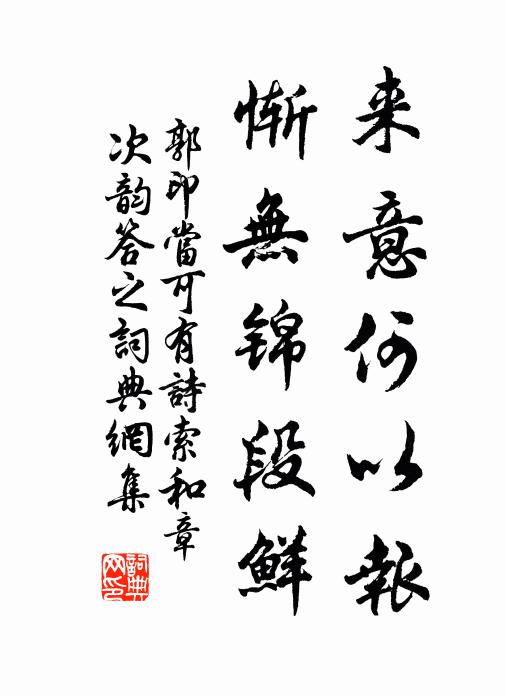 来意何以報
慚無錦段鮮
郭印當可有詩索和章
次韵答之詞典網集
詞典
网印